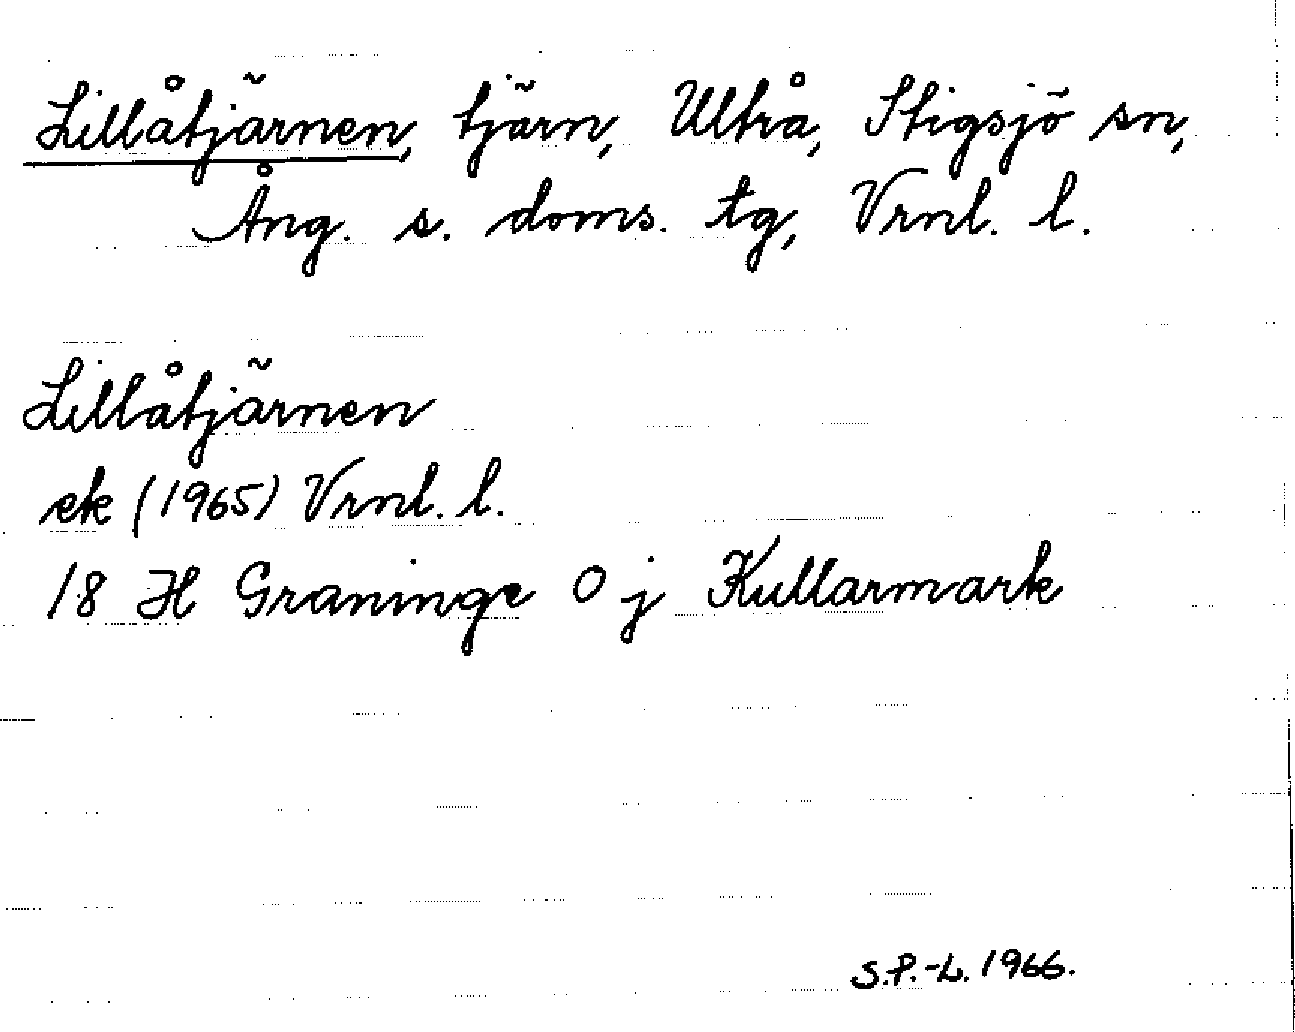 Lillåtjärnen, tjärn, Ultrå, Stigsjö sn,
Ång. s. doms. tg, Vrnl. l.
Lillåtjärnen
ek (1965) Vrnl. l.
18 H Graninge 0 j Kullarmark
S.P.-L. 1966.